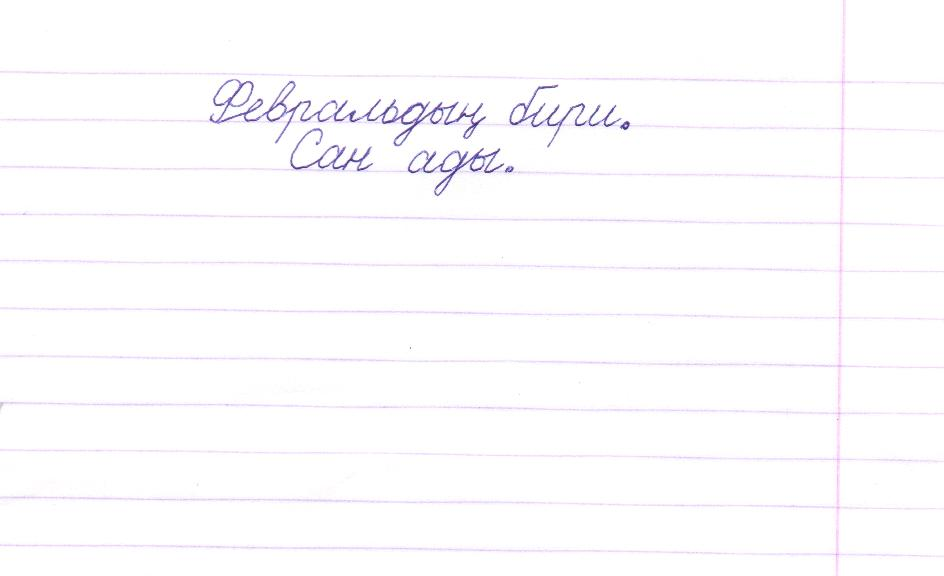 Февральдың бири.
Сан ады.